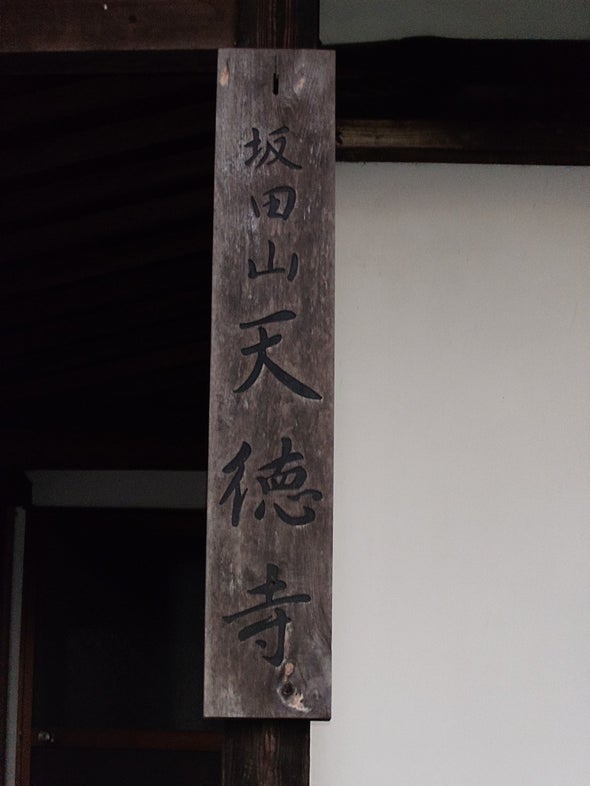 坂田山天徳寺